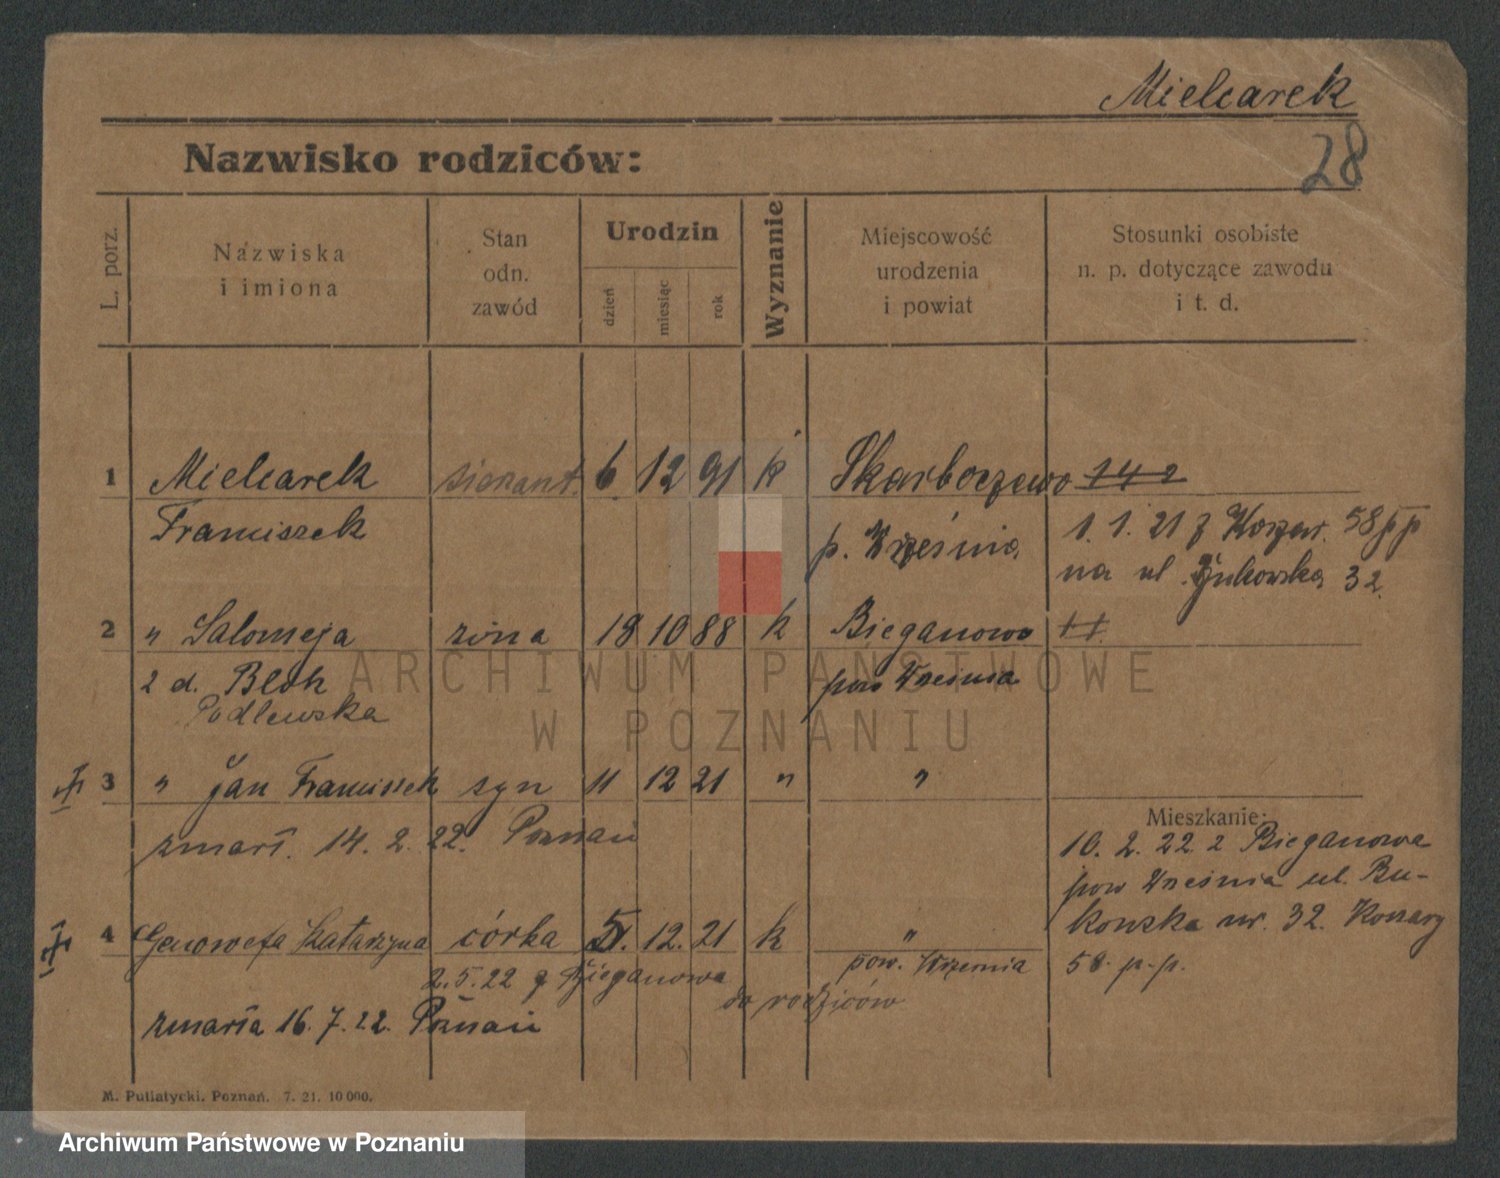 Mielcarek
28
Nazwisko rodziców:
L. porz.
Nazwiska
i imiona
Stan
odn.
zawód
Urodzin
dzień
miesiąc
rok
Wyznanie
Miejscowość
urodzenia
i powiat
Stosunki osobiste
n. p. dotyczące zawodu
i t. d.
1 Mielcarek sierżant. 6. 12 91 k Skarboszewo 14 2
Franciszek p. Września 1. 1. 21 z Koszar. 58 pp
na ul. Bukowska 32
2 " Salomeja żona 19 10 88 k Bieganowo
z d. Blok pow Września
Podlewska
3 " Jan Franciszek syn 11 12 21 " "
zmarł. 14. 2. 22. Poznań
Mieszkanie:
10. 2. 22 z Bieganowa
pow Września ul. Bu-
kowska nr. 32. Koszary
58. p.p.
4 Genowefa Katarzyna córka 5. 12. 21 k "
pow. Września
2. 5. 22 z Bieganowa
do rodziców
zmarła 16. 7. 22. Poznań
M. Putiatycki, Poznań. 7. 21. 10 000.
ARCHIWUM PAŃSTWOWE
W POZNANIU
Archiwum Państwowe w Poznaniu